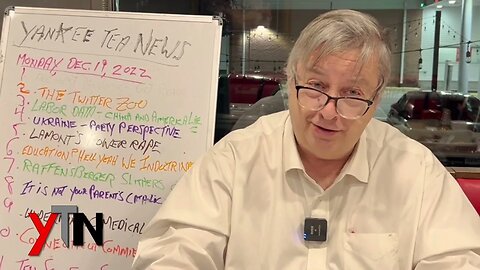 YANKEE TEA NEWS
MONDAY, DEC 19, 2022
1
2. THE TWITTER ZOO
3. LABOR DATA - CHINA AND AMERICA
4. UKRAINE - PARTY PERSPECTIVE
5. LAMONT'S POWER RAPE
6. EDUCATION? HELL YEAH WE INDOCTRINATE
7. RAFFENSBERGER SLITHERS
8. IT IS NOT YOUR PARENT'S CATHOLIC
9 MEDICAL
0. CONNECTICUT COMMIE
YTN